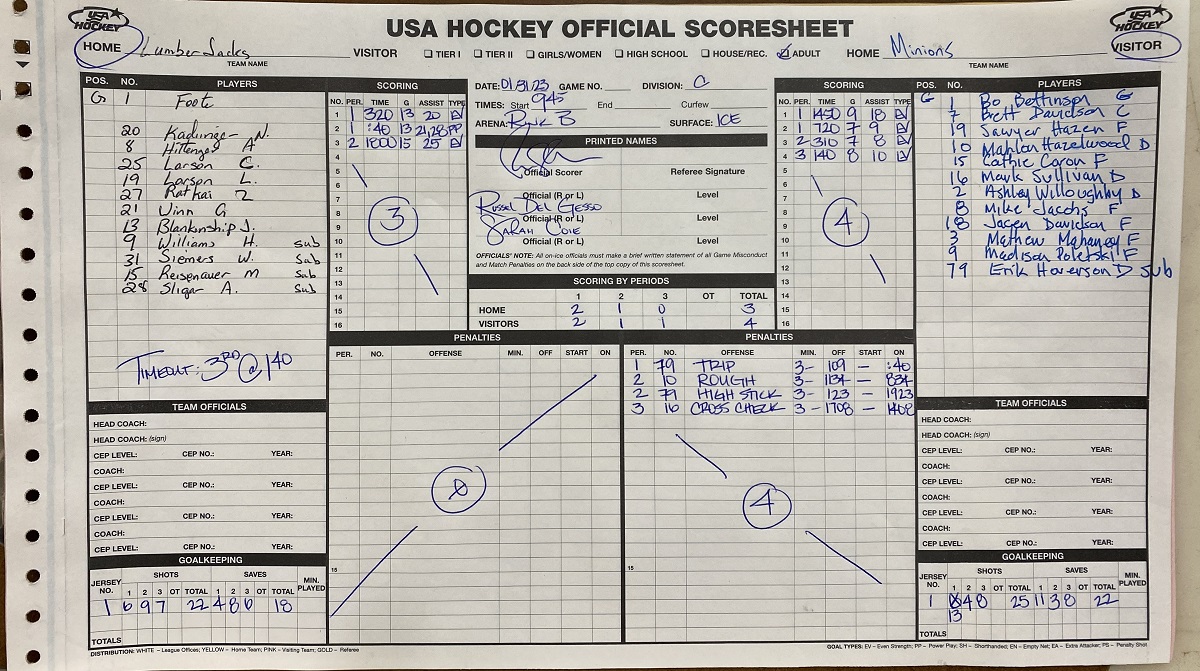 USA HOCKEY OFFICIAL SCORESHEET
USA HOCKEY
USA HOCKEY
HOME LumberJacks
TEAM NAME
VISITOR
TIER I TIER II GIRLS/WOMEN HIGH SCHOOL HOUSE/REC. ADULT
HOME Minions
TEAM NAME
VISITOR
POS. NO. PLAYERS
G 1 Foote
20 N.
8 A
25 Larson C.
19 Larson L.
27 Ratkai Z
21 Vinn G
13 Blankinship J.
9 Williams H. sub
31 Siemers W. Sub
15 Reisenauer M Sub
28 Sligar A. Sub
TIMEOUT: 3RD @ 140
SCORING
NO. PER. TIME G ASSIST TYPE
1 1 320 13 20 EV
2 1 :40 13 21,28 PP
3 2 1800 15 25 EV
4
5
6
7
8
9
10
11
12
13
14
15
16
3
DATE: 01/31/23 GAME NO. DIVISION: C
TIMES: Start 945 End Curfew
ARENA: Rink B SURFACE: ICE
PRINTED NAMES
Official Scorer Referee Signature
Official (R or L) Level
Russel Del Gesso
Official (R or L) Level
Sarah Cole
Official (R or L) Level
OFFICIALS' NOTE: All on-ice officials must make a brief written statement of all Game Misconduct
and Match Penalties on the back side of the top copy of this scoresheet.
SCORING BY PERIODS
1 2 3 OT TOTAL
HOME 2 1 0 3
VISITORS 2 1 1 4
SCORING
NO. PER. TIME G ASSIST TYPE
1 1 1450 9 18 EV
2 1 720 7 9 EV
3 2 310 7 8 EV
4 3 140 8 10 EV
5
6
7
8
9
10
11
12
13
14
15
16
4
POS. NO. PLAYERS
G 1 Bo Bettinson G
7 Brett Davidson C
19 Sawyer Hazen F
10 Mahlon Hazelwood D
15 Cathie Caron F
16 Mark Sullivan D
2 Ashley Willoughby D
8 Mike Jacobs F
18 Jagen Davidson F
3 Mathew Mahaney F
9 Madison Poletski F
79 Erik Haverson D Sub
PENALTIES
PER. NO. OFFENSE MIN. OFF START ON
15
0
PENALTIES
PER. NO. OFFENSE MIN. OFF START ON
1 79 TRIP 3- 109 - :40
2 10 ROUGH 3- 1134 - 834
2 79 HIGH STICK 3- 123 - 1923
3 16 CROSS CHECK 3- 1708 - 1408
15
4
TEAM OFFICIALS
HEAD COACH:
HEAD COACH: (sign)
CEP LEVEL: CEP NO.: YEAR:
COACH:
CEP LEVEL: CEP NO.: YEAR:
COACH:
CEP LEVEL: CEP NO.: YEAR:
COACH:
CEP LEVEL: CEP NO.: YEAR:
GOALKEEPING
JERSEY NO. SHOTS SAVES MIN. PLAYED
1 2 3 OT TOTAL 1 2 3 OT TOTAL
1 6 9 7 22 4 8 6 18
TOTALS
TEAM OFFICIALS
HEAD COACH:
HEAD COACH: (sign)
CEP LEVEL: CEP NO.: YEAR:
COACH:
CEP LEVEL: CEP NO.: YEAR:
COACH:
CEP LEVEL: CEP NO.: YEAR:
COACH:
CEP LEVEL: CEP NO.: YEAR:
GOALKEEPING
JERSEY NO. SHOTS SAVES MIN. PLAYED
1 2 3 OT TOTAL 1 2 3 OT TOTAL
1 4 8 25 11 3 8 22
13
TOTALS
DISTRIBUTION: WHITE – League Offices; YELLOW – Home Team; PINK – Visiting Team; GOLD – Referee
GOAL TYPES: EV – Even Strength; PP – Power Play; SH – Shorthanded; EN – Empty Net; EA – Extra Attacker; PS – Penalty Shot